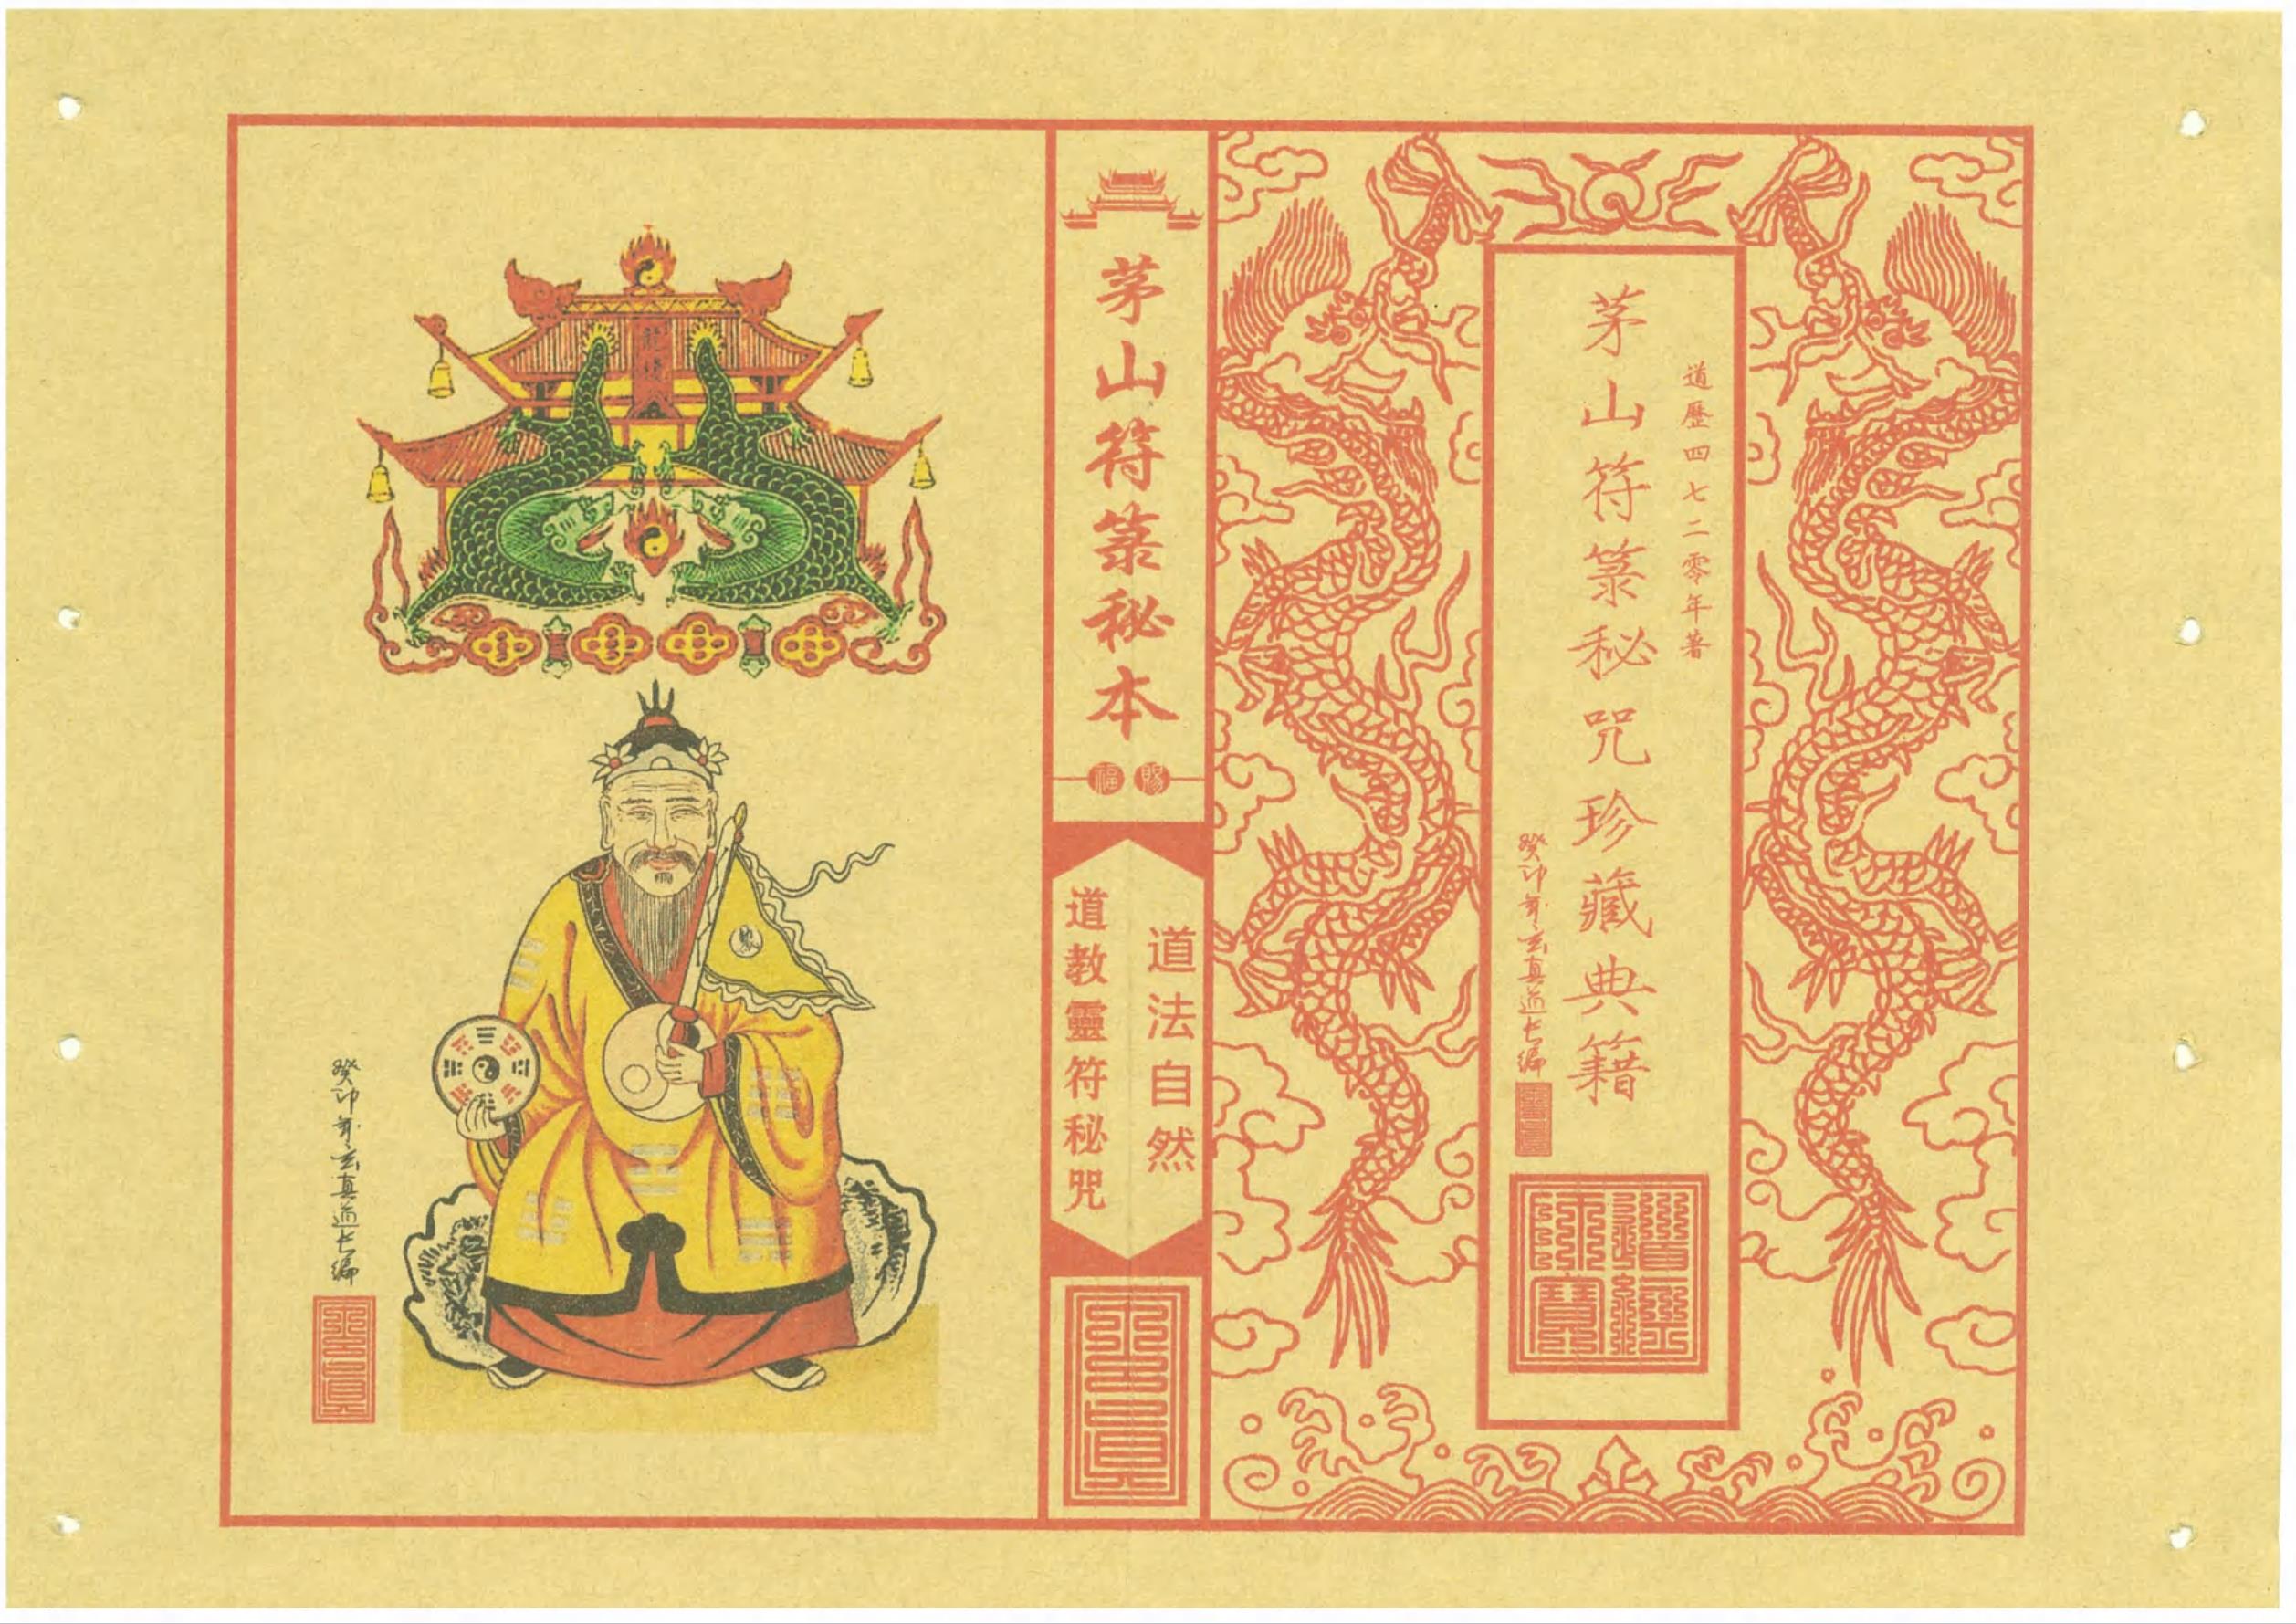 道歷四七二零年著
茅山符箓秘咒珍藏典籍
癸卯年玄真道长编
茅山符箓秘本
賜福
道法自然
道教靈符秘咒
癸卯年玄真道长编